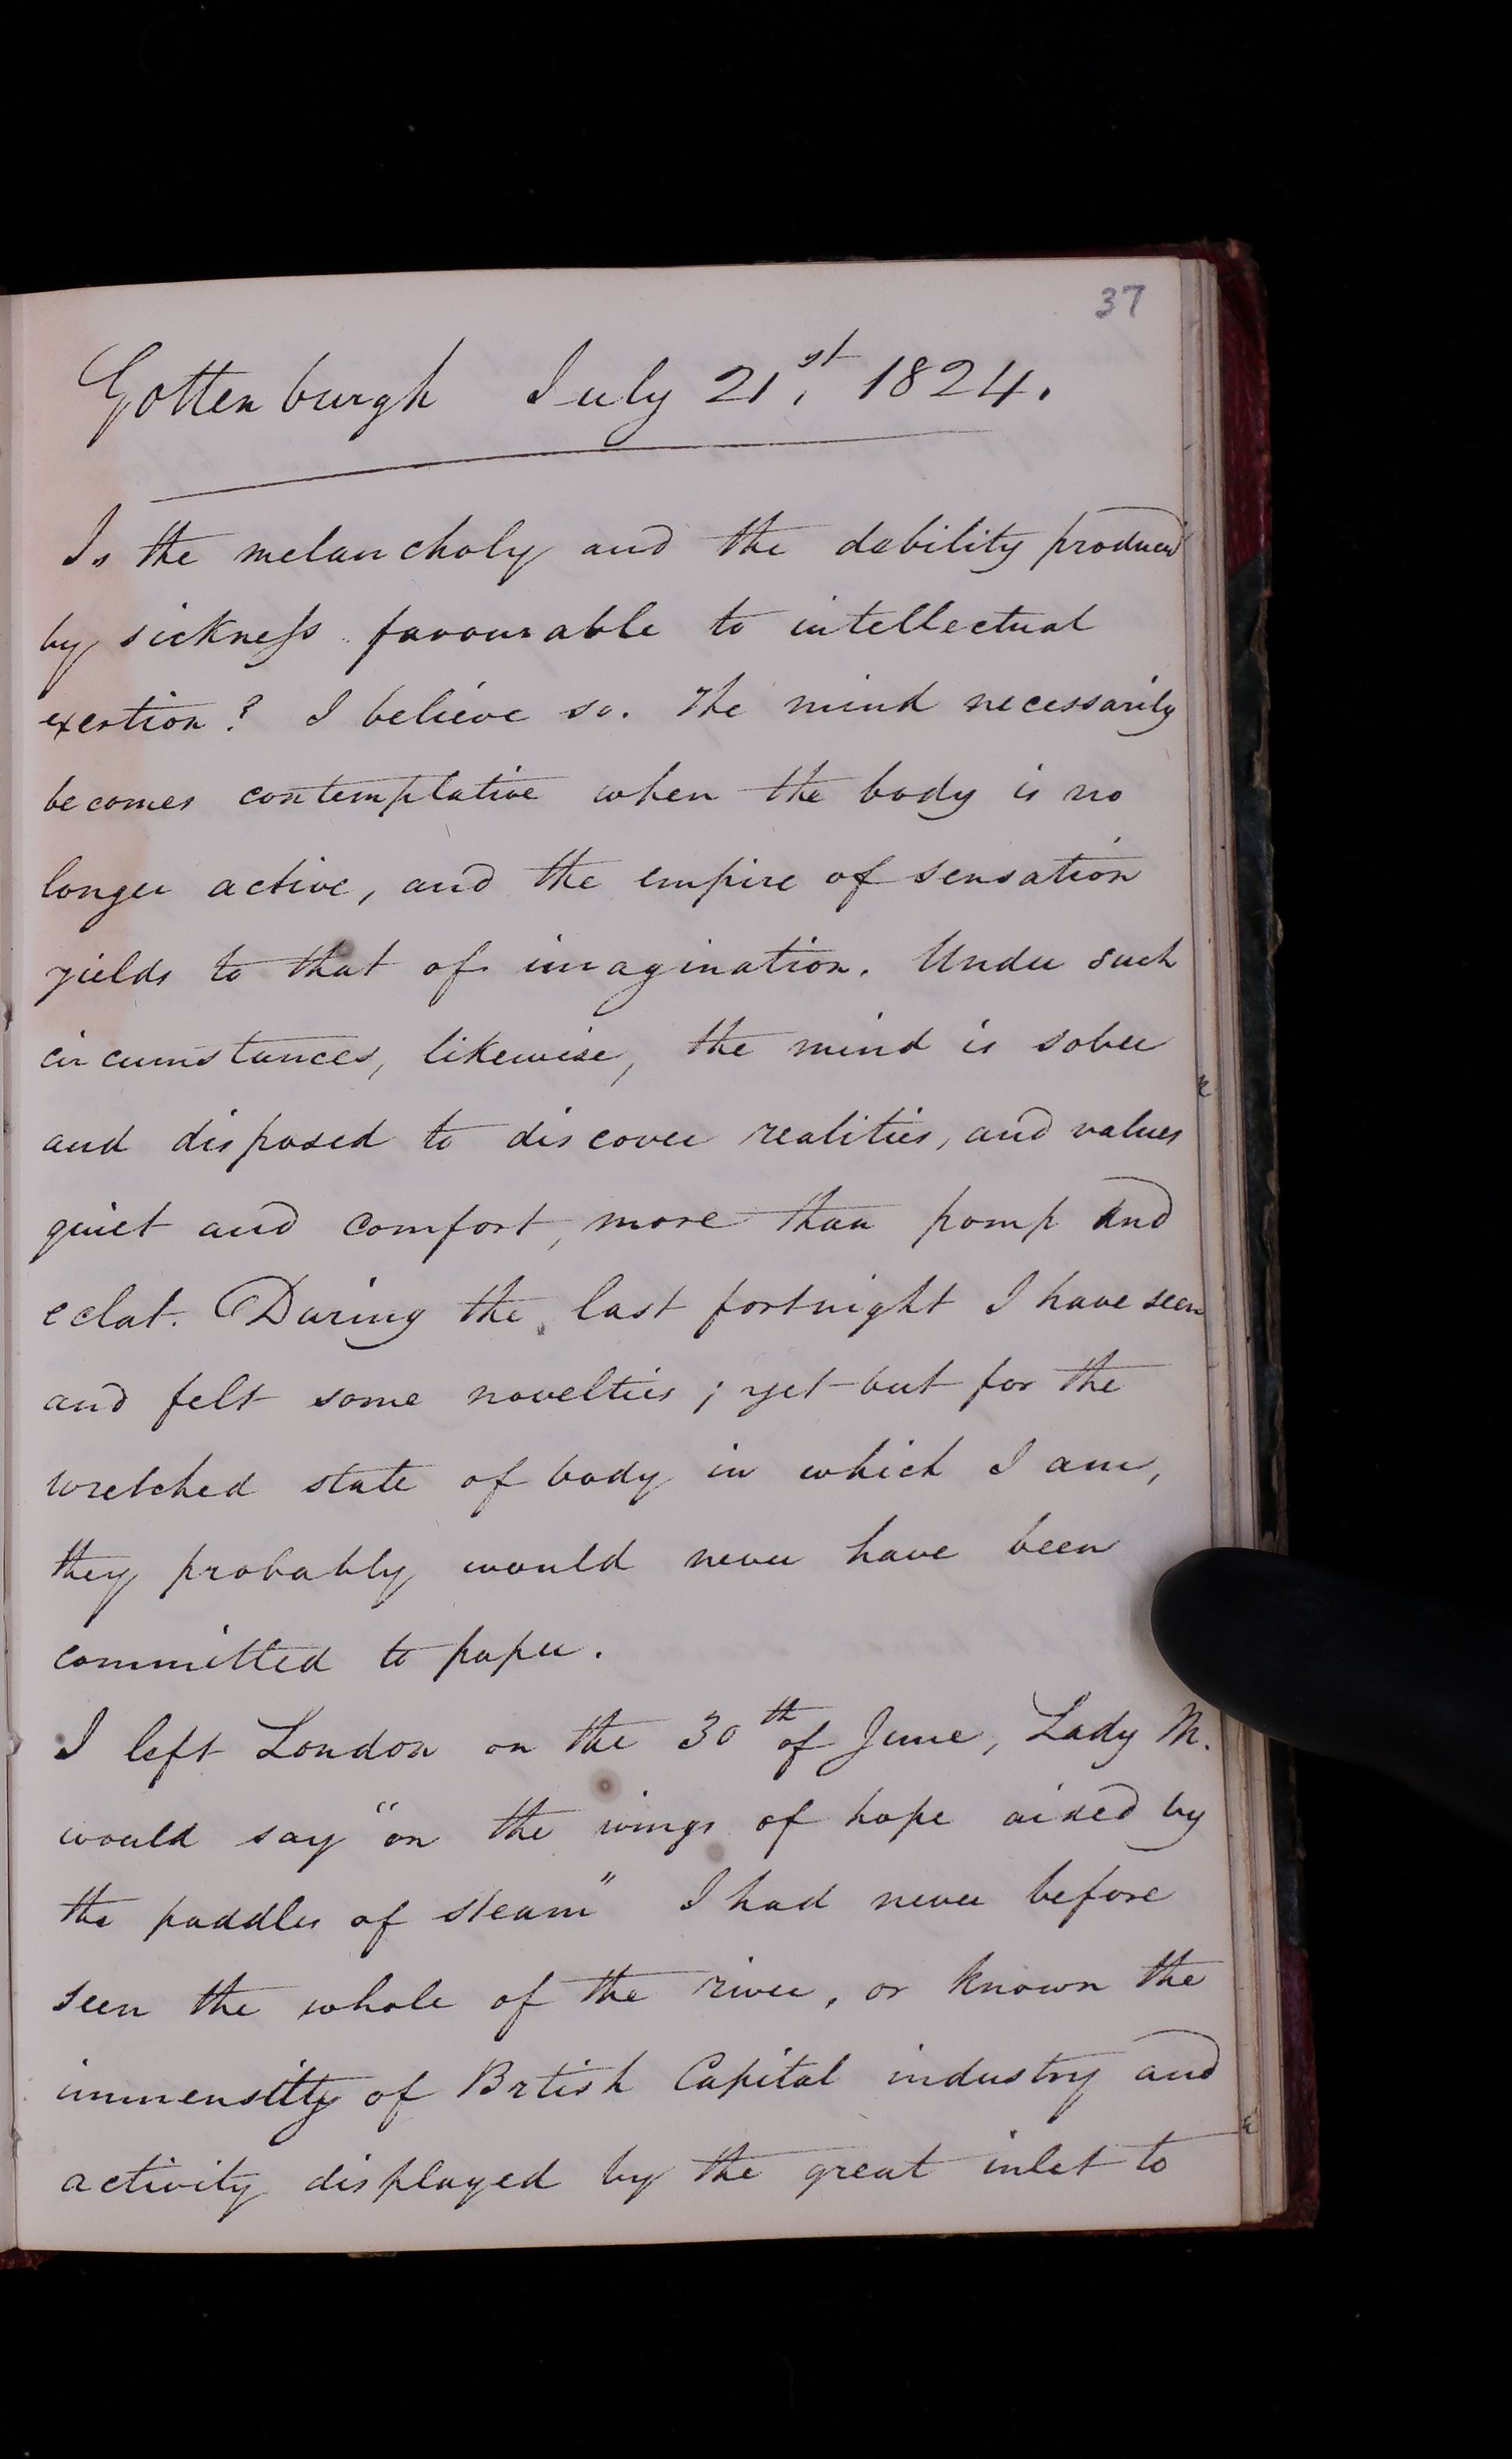 37
Gottenburgh July 21st. 1824.
Is the melancholy and the debility produced
by sickness favourable to intellectual
exertion? I believe so. The mind necessarily
becomes contemplative when the body is no
longer active, and the empire of sensation
yields to that of imagination. Under such
circumstances, likewise, the mind is sober
and disposed to discover realities, and values
quiet and comfort, more than pomp and
eclat. During the last fortnight I have seen
and felt some novelties; yet but for the
wretched state of body in which I am,
they probably would never have been
committed to paper.
I left London on the 30th of June, Lady M.
would say "on the wings of hope aided by
the paddles of steam" I had never before
seen the whole of the river, or known the
immensity of Brtish Capital industry and
activity displayed by the great inlet to